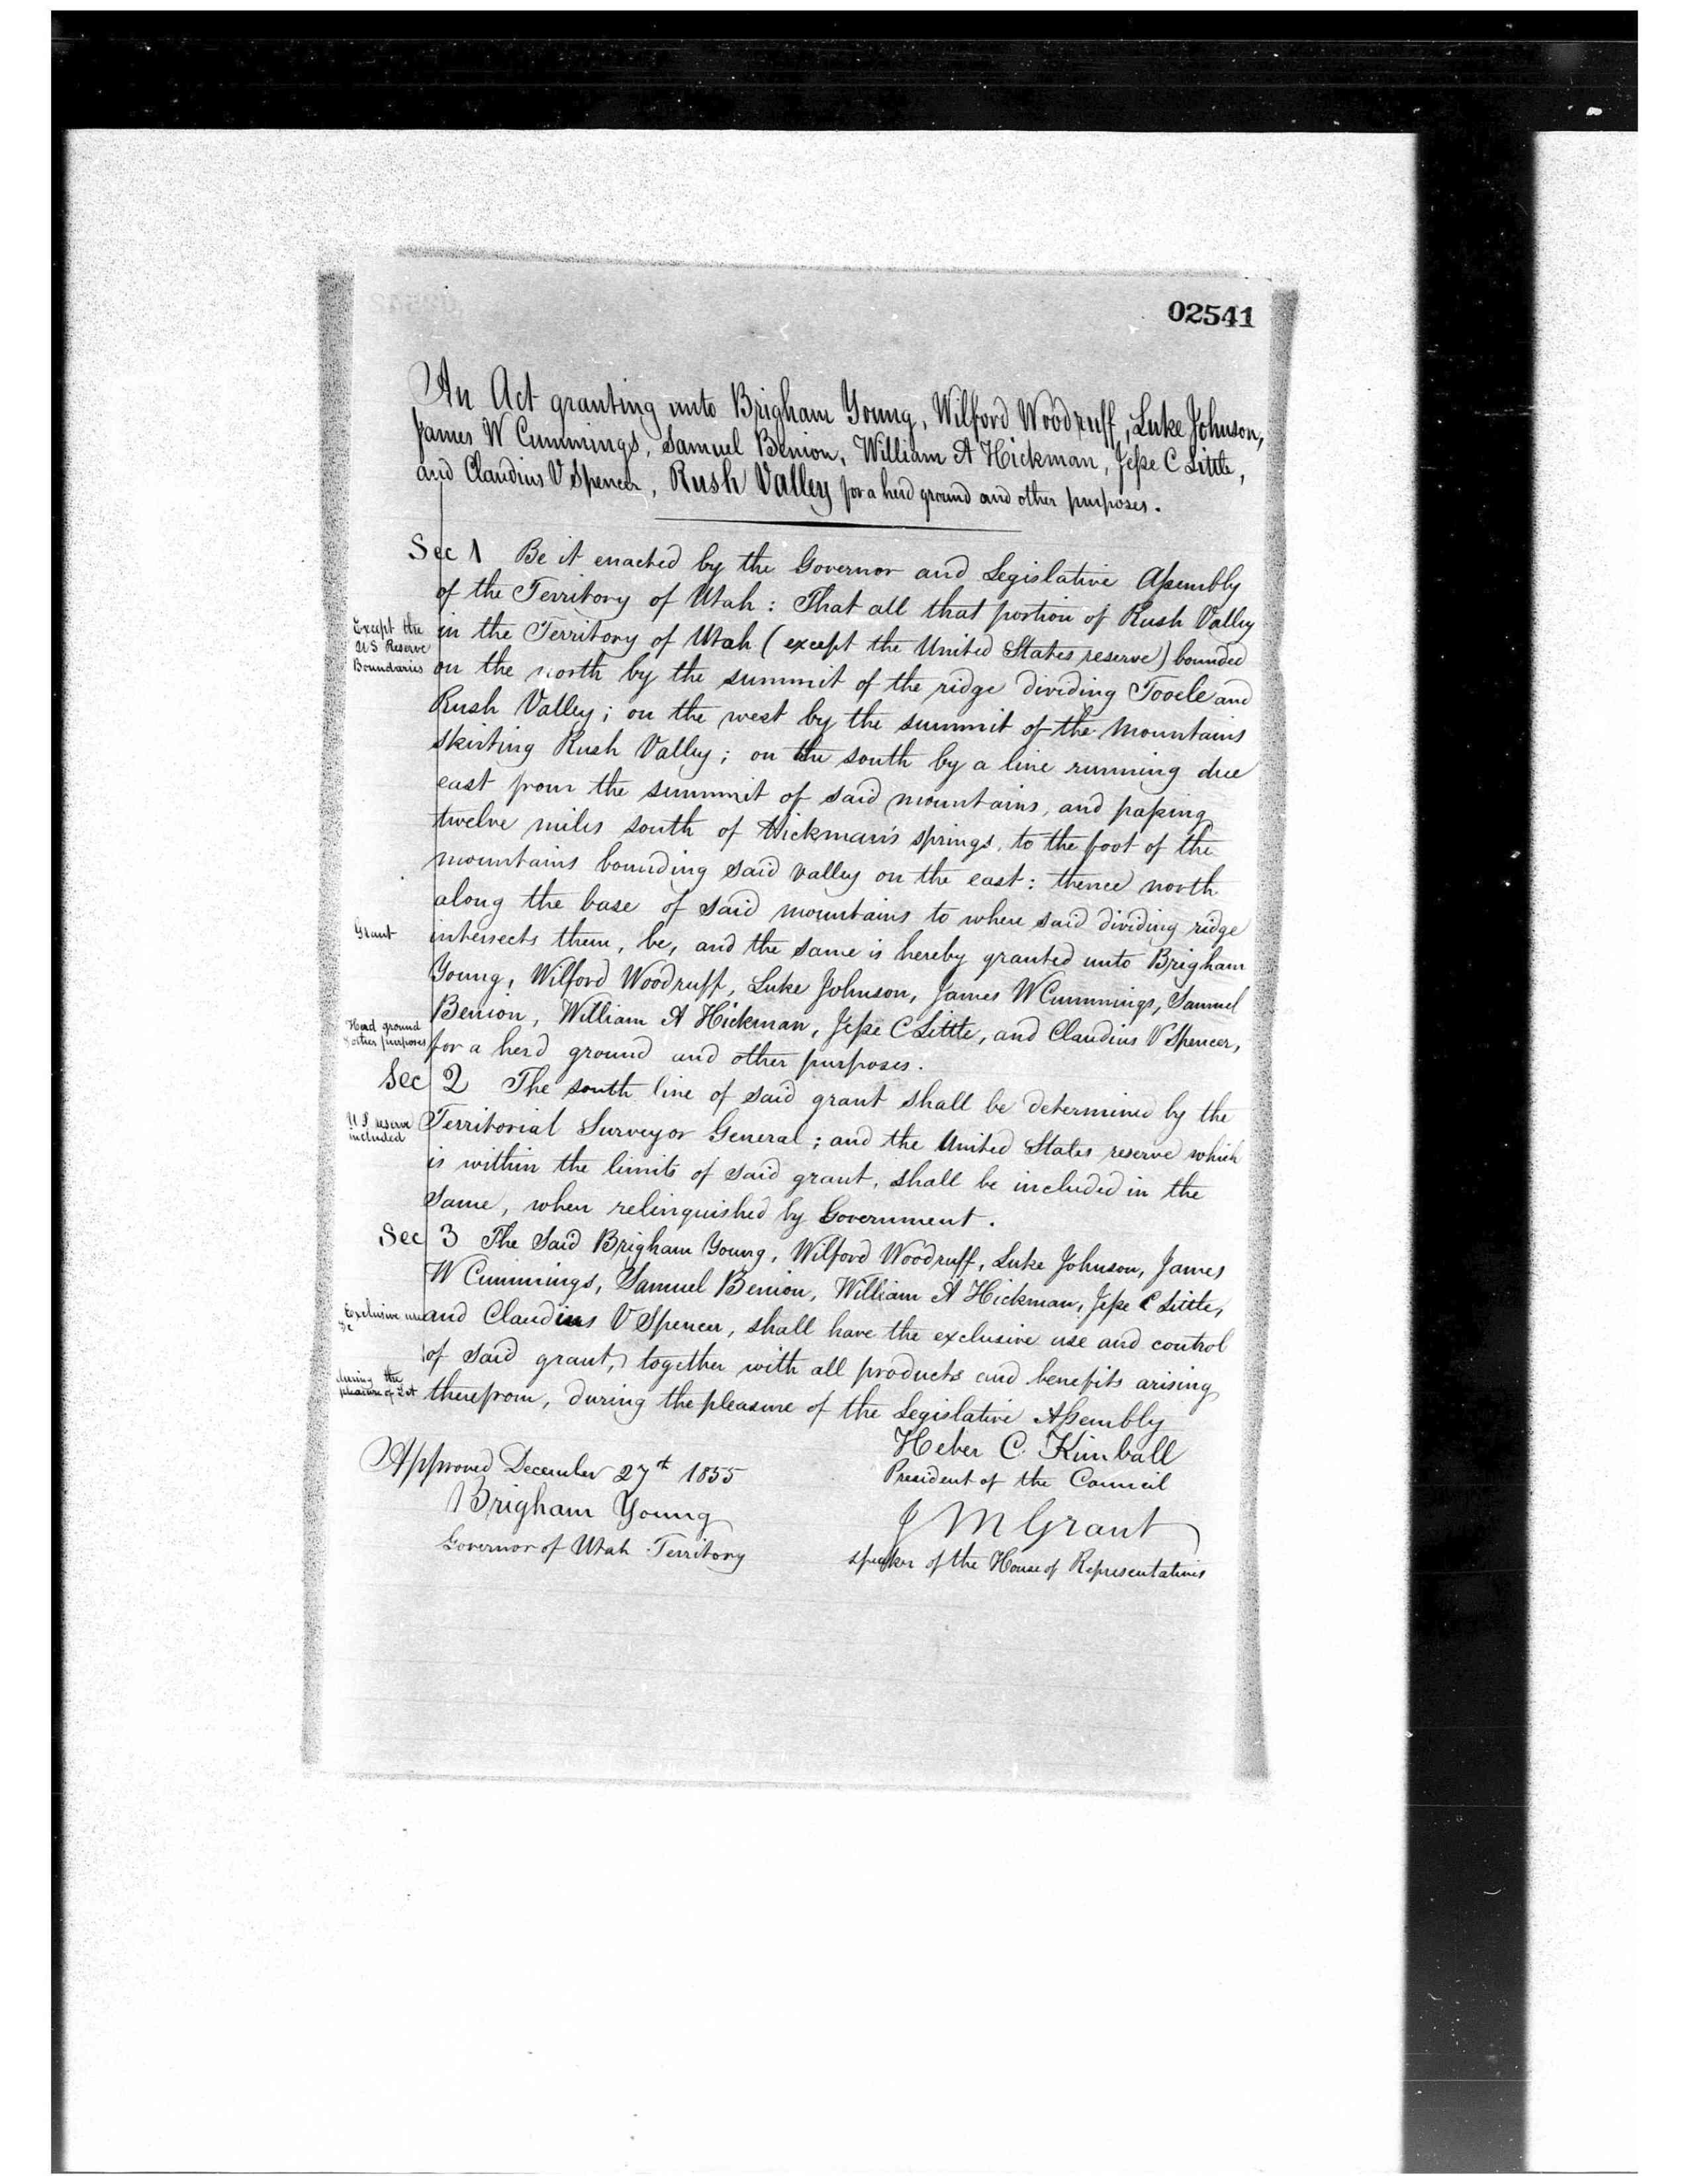 02541
An Act granting unto Brigham Young, Wilford Woodruff, Luke Johnson,
James W Cummings, Samuel Benion, William A Hickman, Jesse C Little,
and Claudius V Spencer, Rush Valley for a herd ground and other purposes.
Sec 1 Be it enacted by the Governor and Legislative Assembly
of the Territory of Utah: That all that portion of Rush Valley
Except the
US Reserve
Boundaries
in the Territory of Utah (except the United States reserve) bounded
on the north by the summit of the ridge dividing Tooele and
Rush Valley; on the west by the summit of the mountains
skirting Rush Valley; on the south by a line running due
east from the summit of said mountains, and passing
twelve miles south of Hickman's springs, to the foot of the
mountains bounding said valley on the east: thence north
along the base of said mountains to where said dividing ridge
Grant
intersects them, be, and the same is hereby granted unto Brigham
Young, Wilford Woodruff, Luke Johnson, James W Cummings, Samuel
Benion, William A Hickman, Jesse C Little, and Claudius V Spencer,
Herd ground
& other purposes
for a herd ground and other purposes.
Sec 2 The south line of said grant shall be determined by the
U S reserve
included
Territorial Surveyor General; and the United States reserve which
is within the limits of said grant, shall be included in the
same, when relinquished by Government.
Sec 3 The said Brigham Young, Wilford Woodruff, Luke Johnson, James
W Cummings, Samuel Benion, William A Hickman, Jesse C Little,
Exclusive use
&c
and Claudius V Spencer, shall have the exclusive use and control
of said grant, together with all products and benefits arising
during the
pleasure of
therefrom, during the pleasure of the Legislative Assembly
Heber C. Kimball
President of the Council
Approved December 27th 1855
Brigham Young
Governor of Utah Territory
J M Grant
speaker of the House of Representatives